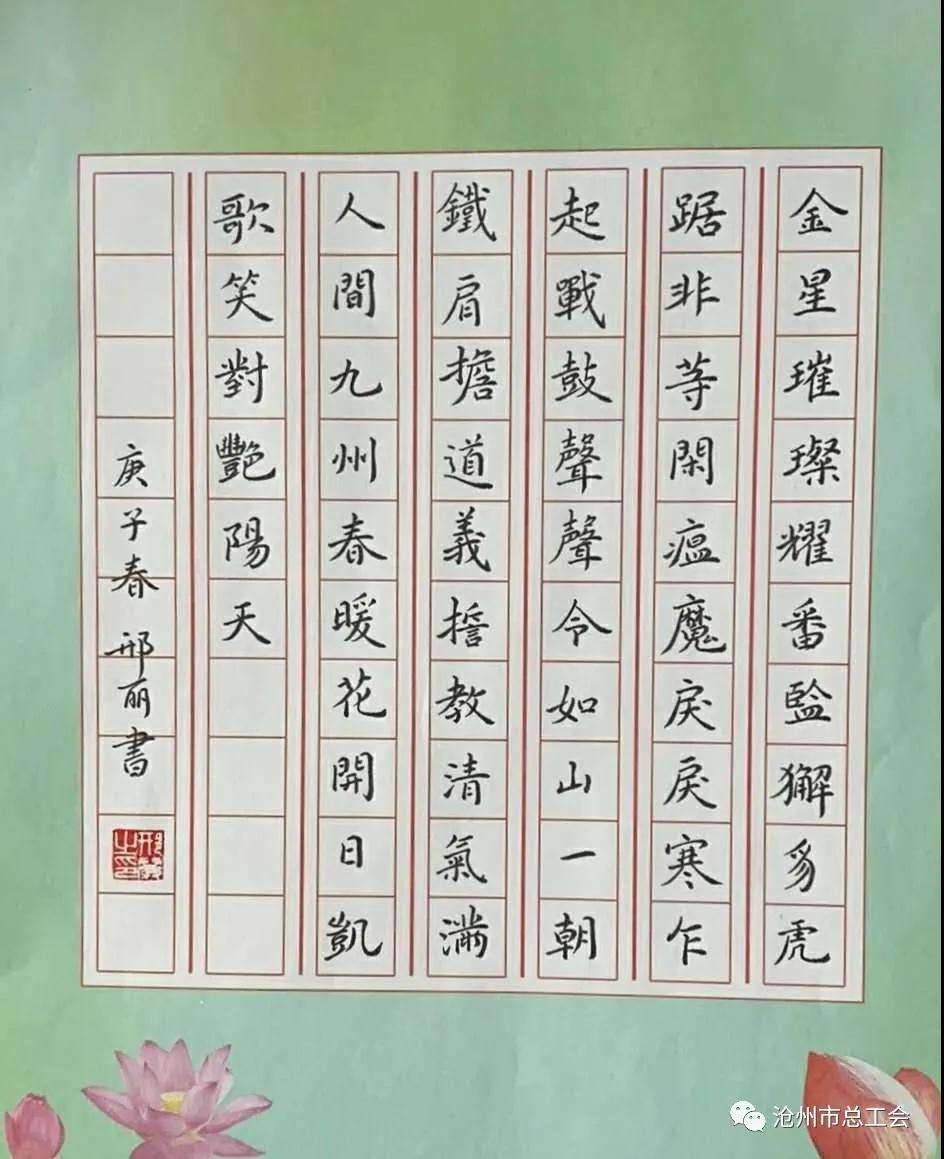 金星璀璨耀番監獬豸虎
踞非等閑瘟魔戾戾寒乍
起戰鼓聲聲令如山一朝
鐵肩擔道義擔教清氣滿
人間九州春暖花開日凱
歌笑對艷陽天
庚子春 邢丽書
沧州市总工会